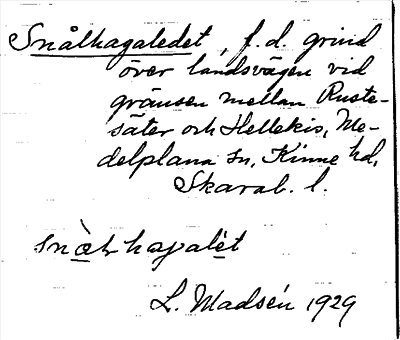 Snålhagaledet, f.d. grind
över landsvägen vid
gränsen mellan Ruste-
säter och Hellekis, Me-
delplana sn, Kinne hd,
Skarab. l.
L. Madsén 1929